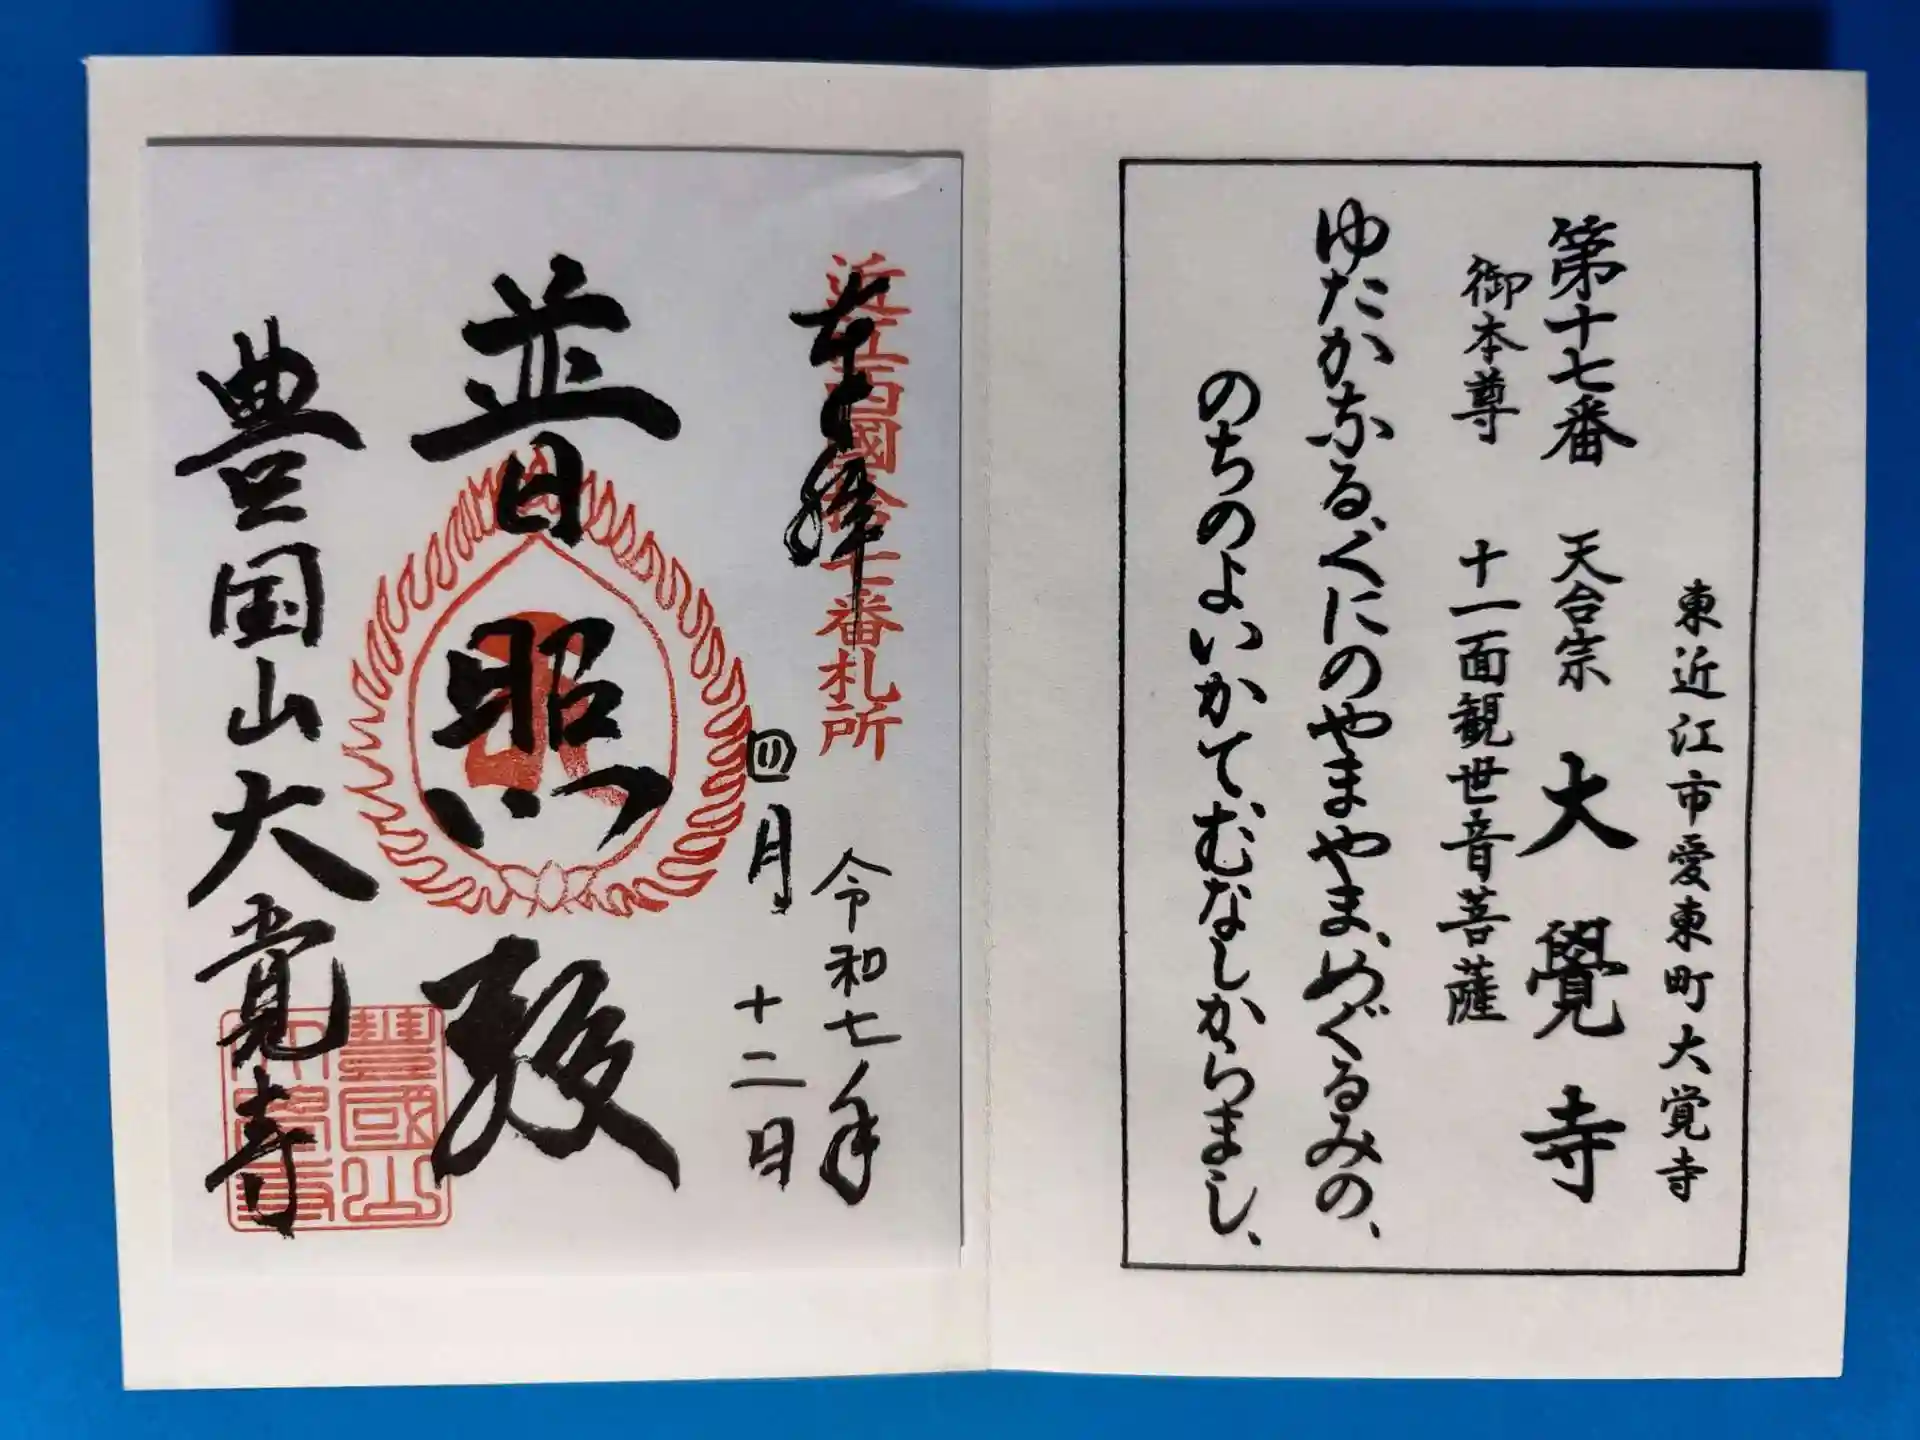 東近江市愛東町大覚寺
第十七番 天台宗 大覺寺
御本尊 十一面観世音菩薩
ゆたかなる、くにのやまやま、めぐるみの、
のちのよいかて、むなしからまし、
近江西國拾七番札所
奉拝
令和七年
四月十二日
普照殿
豊国山大覚寺
豐國山
大覺寺